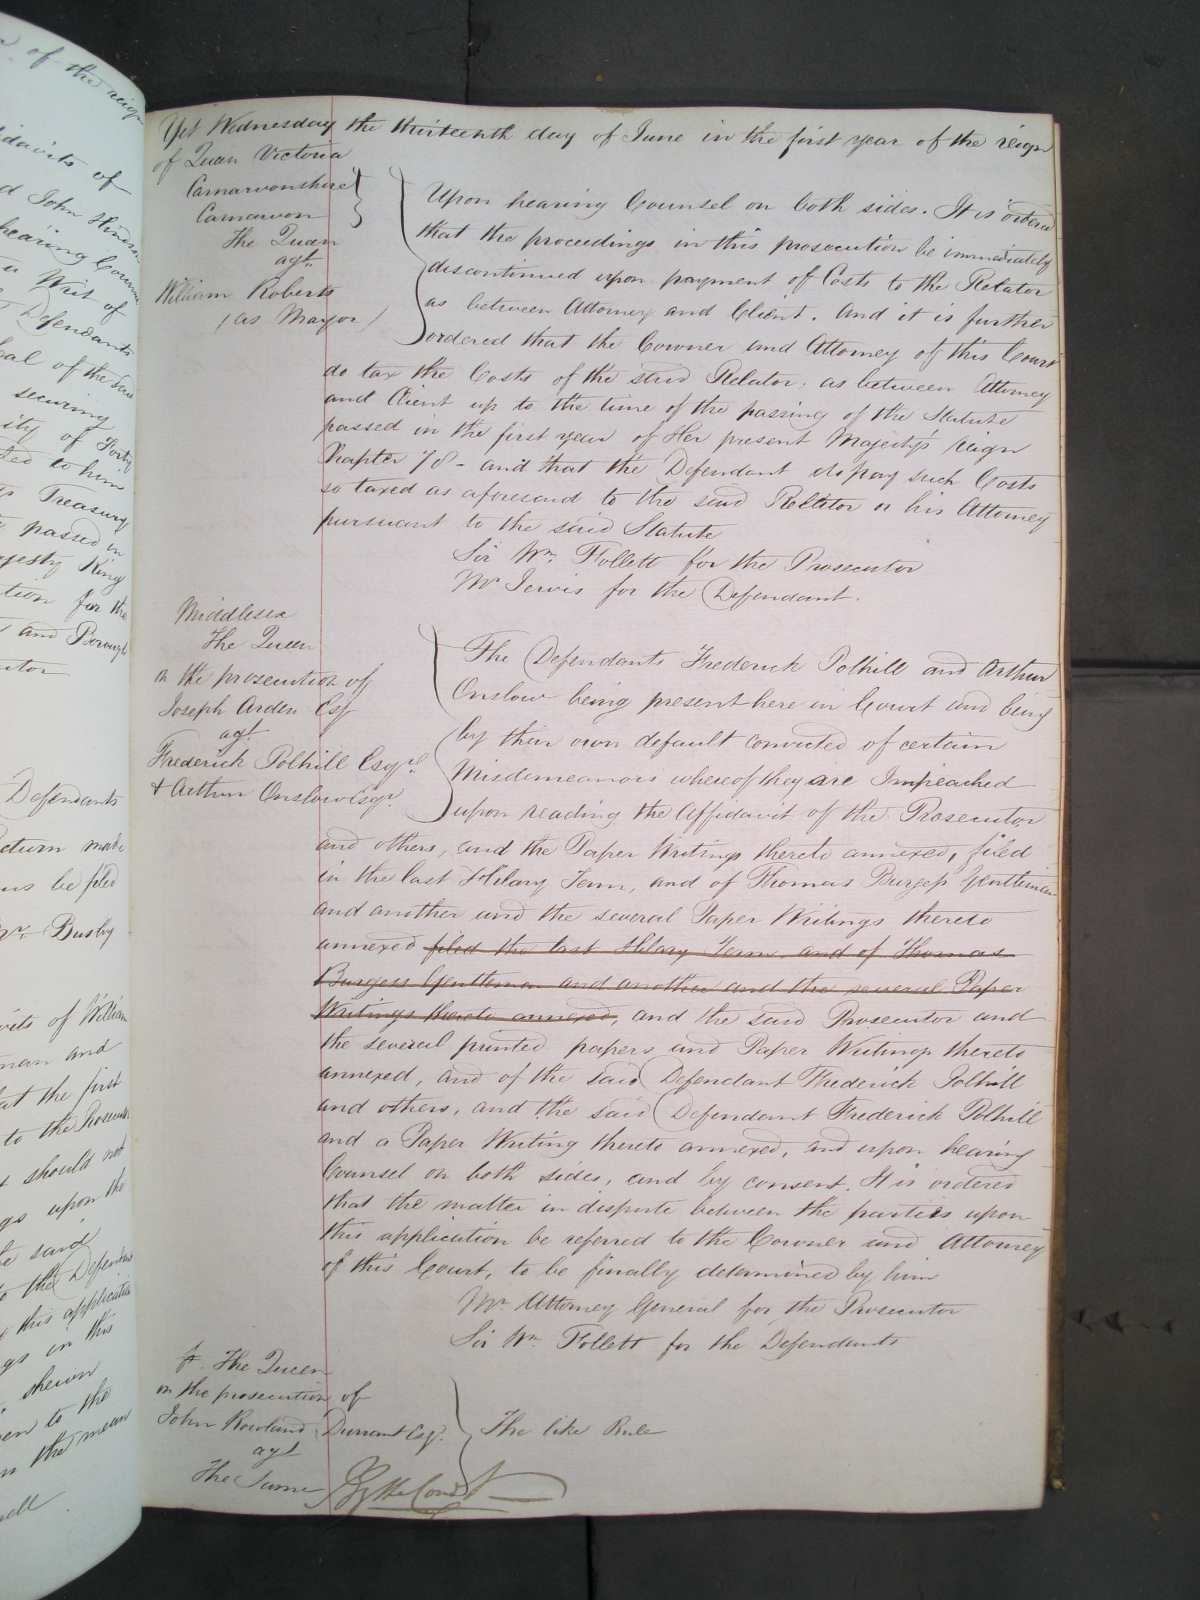 of the reign
Yet Wednesday the thirteenth day of June in the first year of the reign
of Queen Victoria
Carnarvonshire
Carnarvon
The Queen
agt.
William Roberts
(as Mayor)
Upon hearing Counsel on both sides. It is ordered
that the proceedings in this prosecution be immediately
discontinued upon payment of Costs to the Relator
as between Attorney and Client. And it is further
ordered that the Coroner and Attorney of this Court
do tax the Costs of the said Relator, as between Attorney
and Client up to the time of the passing of the Statute
passed in the first year of Her present Majesty's reign
Chapter 78 - and that the Defendant do pay such Costs
so taxed as aforesaid to the said Relator or his Attorney
pursuant to the said Statute
Sir Wm. Follett for the Prosecutor
Mr Jervis for the Defendant.
Middlesex
The Queen
on the prosecution of
Joseph Arden Esqr
agt.
Frederick Polhill Esqre.
& Arthur Onslow Esqr.
The Defendants Frederick Polhill and Arthur
Onslow being present here in Court and being
by their own default convicted of certain
Misdemeanors whereof they are Impeached
upon reading the Affidavit of the Prosecutor
and others, and the Paper Writings thereto annexed, filed
in the last Hilary Term, and of Thomas Burgess Gentleman
and another and the several Paper Writings thereto
annexed filed the last Hilary Term, and of Thomas
Burgess Gentleman and another and the several Paper
Writings thereto annexed, and the said Prosecutor and
the several printed papers and Paper Writings thereto
annexed, and of the said Defendant Frederick Polhill
and others, and the said Defendant Frederick Polhill
and a Paper Writing thereto annexed, and upon hearing
Counsel on both sides, and by consent. It is ordered
that the matter in dispute between the parties upon
this application be referred to the Coroner and Attorney
of this Court, to be finally determined by him
Mr Attorney General for the Prosecutor
Sir Wm. Follett for the Defendants
The Queen
on the prosecution of
John Rowland Durrant Esqr.
agt
The Same
The like Rule
By the Court
davits of
d John
hearing
Writ of
Defendants
securing
sty of Forty
to him
Treasury
passed in
King
tion for the
and Borough
Defendants
eturn made
be filed
Busby
of William
man and
at the first
to the
should not
upon the
said
to the
this application
in this
shewn
to the
the mean